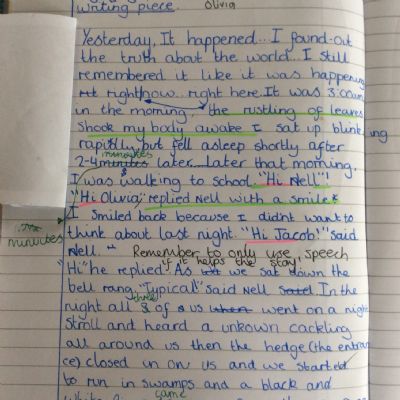 writing piece. Olivia
Yesterday, It happened... I found out
the truth about the world... I still
remembered it like it was happening
right now, right here. It was 3:00am
in the morning. the rustling of leaves
shook my body awake I sat up blinking
rapidly but fell asleep shortly after
minutes
2-4 minutes later... Later that morning.
I was walking to school. "Hi Nell"!
"Hi Olivia" replied Nell with a smile
I smiled back because I didnt want to
minutes
think about last night. "Hi Jacob!" said
Nell. " Remember to only use speech
if it helps the story!
"Hi" he replied. As we sat down the
bell rang. "Typical" said Nell. In the
three
night all 3 of us went on a night
stroll and heard a unkown cackling
all around us then the hedge (the entran
ce) closed in on us and we start
to run in swamps and a black and
came